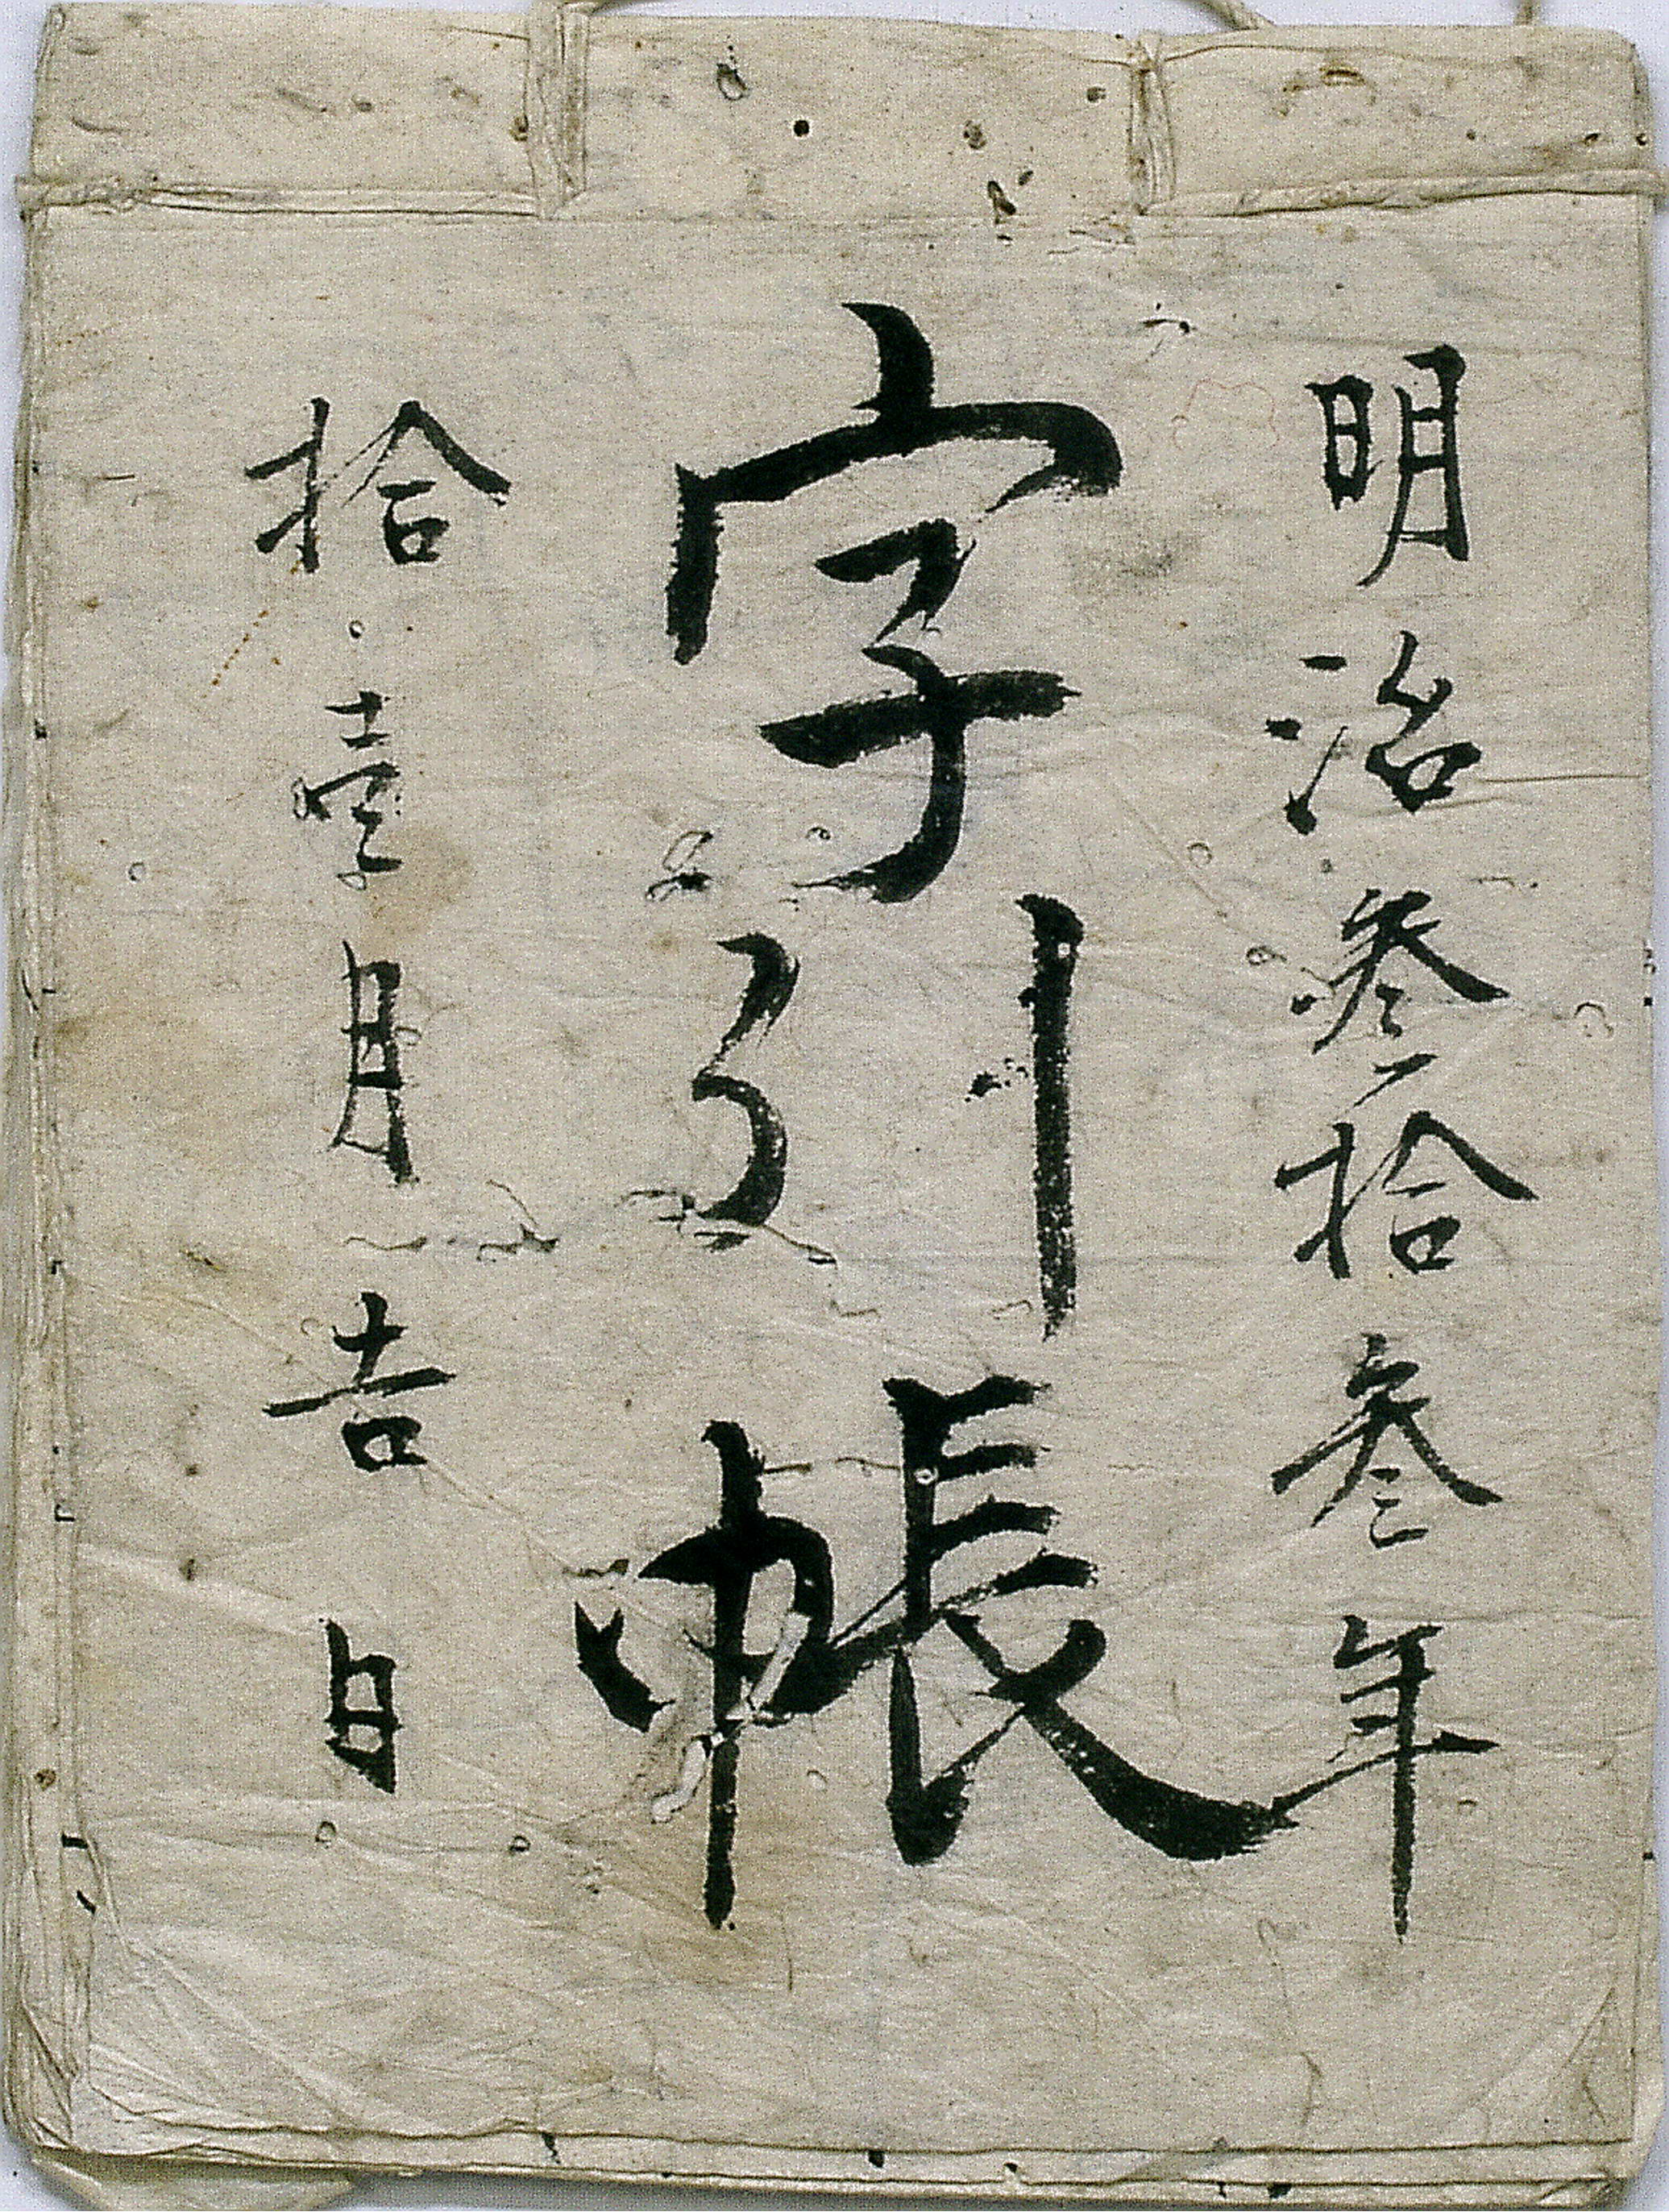 明治参拾参年
字引帳
拾壹月吉日